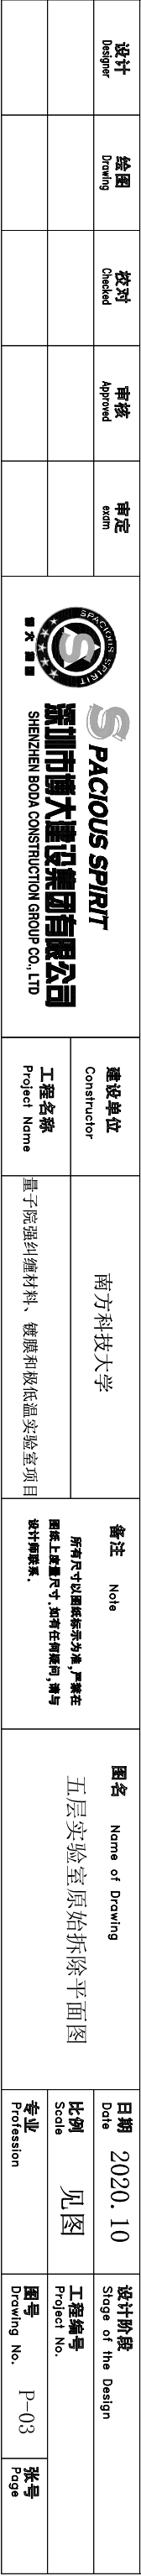 设计
Designer
绘图
Drawing
校对
Checked
审核
Approved
审定
exam
SPACIOUS SPIRIT
S
博大建设
SPACIOUS SPIRIT
深圳市博大建设集团有限公司
SHENZHEN BODA CONSTRUCTION GROUP CO., LTD
建设单位
Constructor
南方科技大学
工程名称
Project Name
量子院强纠缠材料、镀膜和极低温实验室项目
备注 Note
所有尺寸以图纸标示为准,严禁在
图纸上度量尺寸.如有任何疑问,请与
设计师联系.
图名 Name of Drawing
五层实验室原始拆除平面图
日期
Date
2020.10
设计阶段
Stage of the Design
比例
Scale
见图
工程编号
Project No.
专业
Profession
图号
Drawing No.
P-03
张号
Page